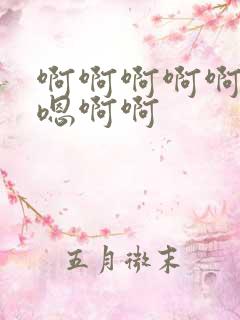 啊啊啊啊啊
嗯啊啊
五月微末